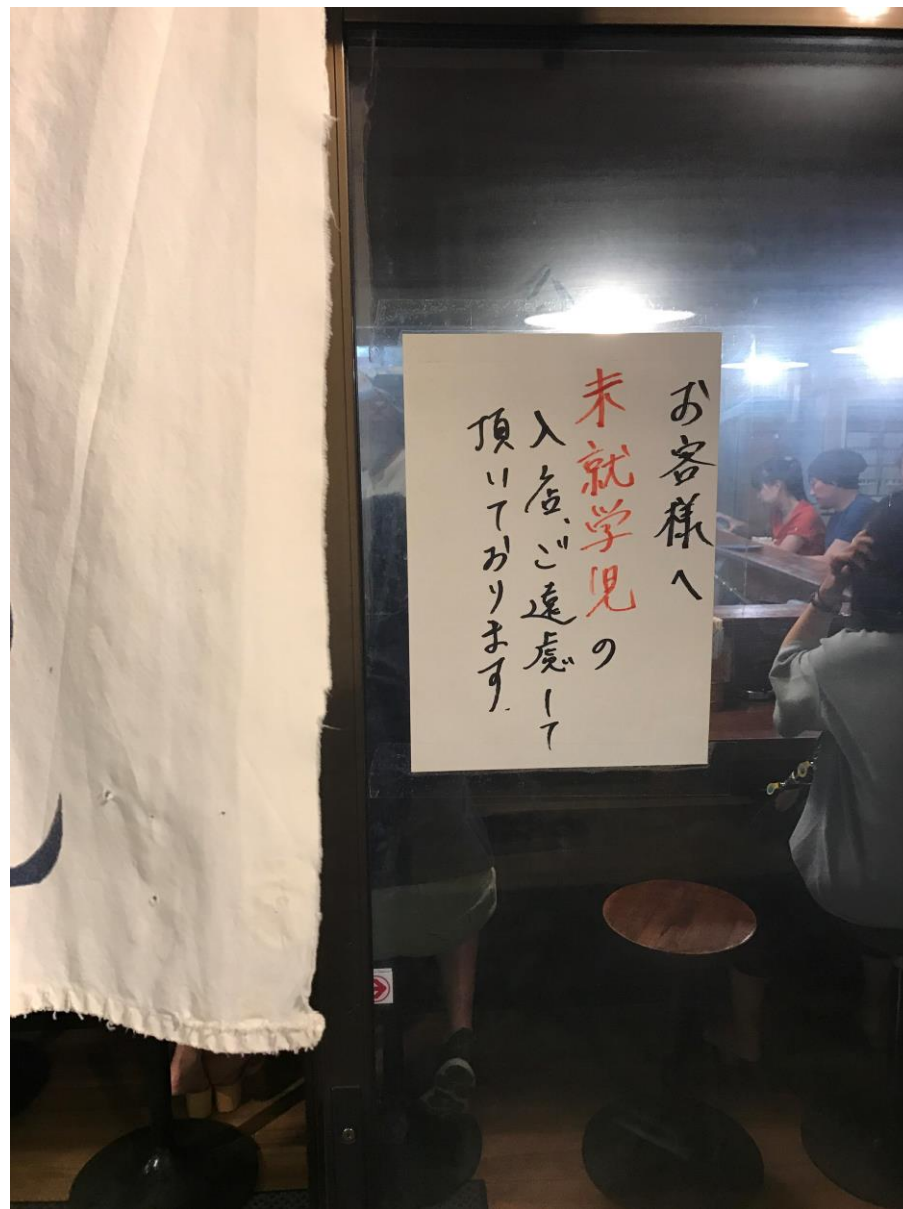 お客様へ
未就学児の
入店、ご遠慮して
頂いております.